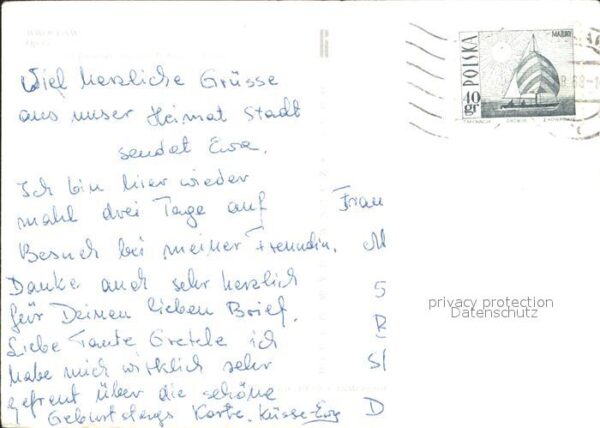 WROCŁAW
Viel herzliche Grüsse
aus unser Heimat Stadt
sendet Ewa.
Ich bin hier wieder
mahl drei Tage auf
Besuch bei meiner Freundin.
Danke auch sehr herzlich
für Deinen lieben Brief.
Liebe Tante Gretele ich
habe mich wirklich sehr
gefreut über die schöne
Geburtstags Karte. Küsse-Ewa
Frau
M
5
R
Sl
D
MAZURY
POLSKA
40 gr
privacy protection
Datenschutz